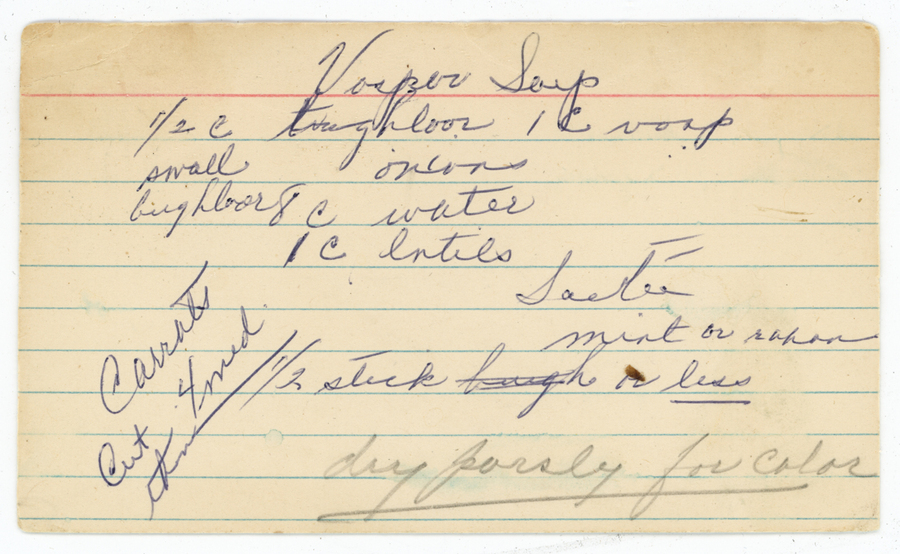 Vospov Soup
1/2 c tzughloor 1 C vosp
small onions
bughloor 8 c water
1 C lntils
Saute
mint or rahan
1/2 stick bugh or less
dry parsly for color
Carrots
4 med.
Cut thin